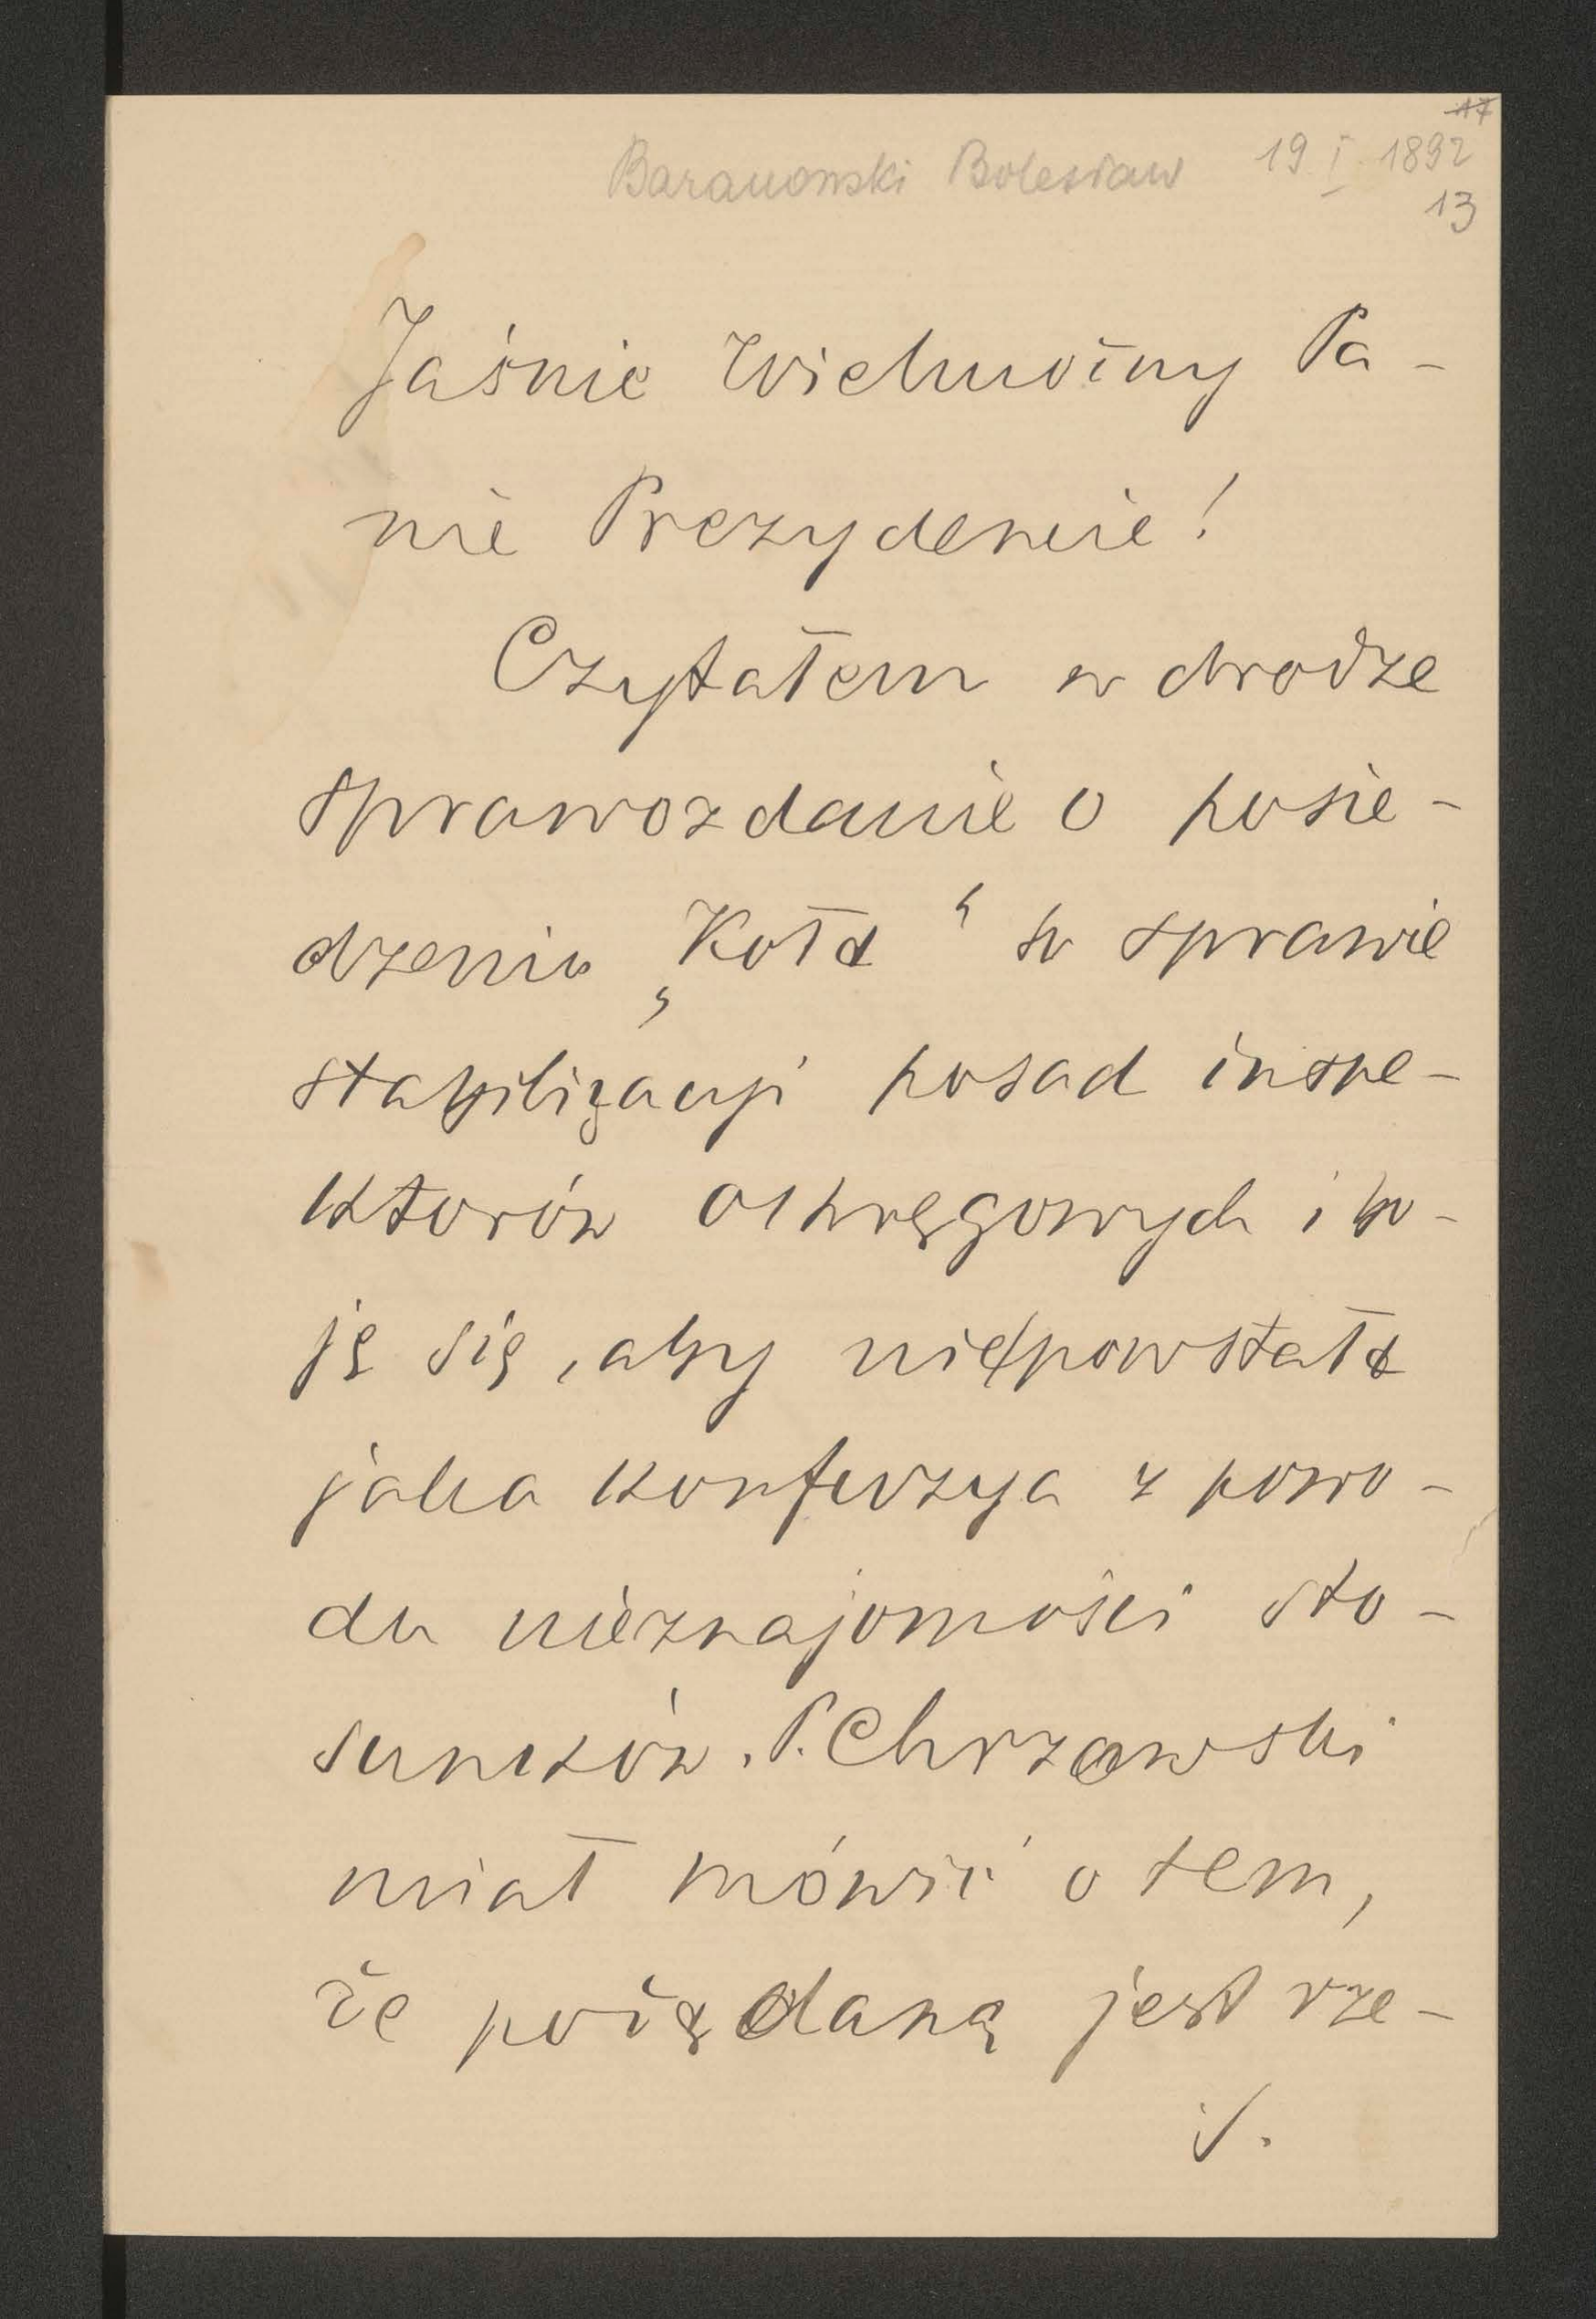 17
Baranowski Bolesław 19 I 1892
13
Jaśnie Wielmożny Pa-
nie Prezydencie!
Czytałem w drodze
sprawozdanie o posie-
dzeniu „Koła“ w sprawie
stabilizacyi posad inspe-
ktorów okręgowych i bo-
ję się, aby nie powstała
jaka konfuzya z powo-
du nieznajomości sto-
sunków. P. Chrzanowski
miał mówić o tem,
że pożądaną jest rze-